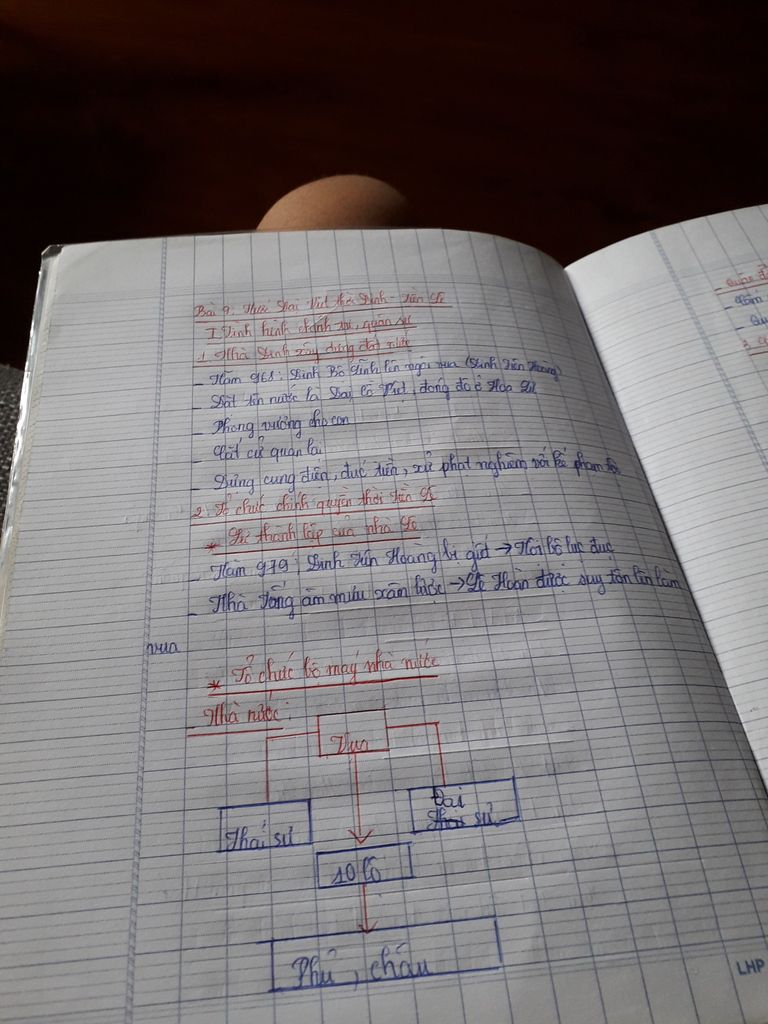 Bài 9. Nước Đại Việt thời Đinh - Tiền Lê
I Tình hình chính trị, quân sự
1. Nhà Đinh xây dựng đất nước
- Năm 968: Đinh Bộ Lĩnh lên ngôi vua (Đinh Tiên Hoàng)
- Đặt tên nước là Đại Cồ Việt, đóng đô ở Hoa Lư
- Phong vương cho con
- Cắt cử quan lại
- Dựng cung điện, đúc tiền, xử phạt nghiêm với kẻ phạm tội
2. Tổ chức chính quyền thời Tiền Lê
* Sự thành lập của nhà Lê
- Năm 979: Đinh Tiên Hoàng bị giết → Nội bộ lục đục
- Nhà Tống âm mưu xâm lược → Lê Hoàn được suy tôn lên làm
vua
* Tổ chức bộ máy nhà nước
- Nhà nước:
Vua
Thái sư
Đại
sư
10 lộ
Phủ, châu
LHP